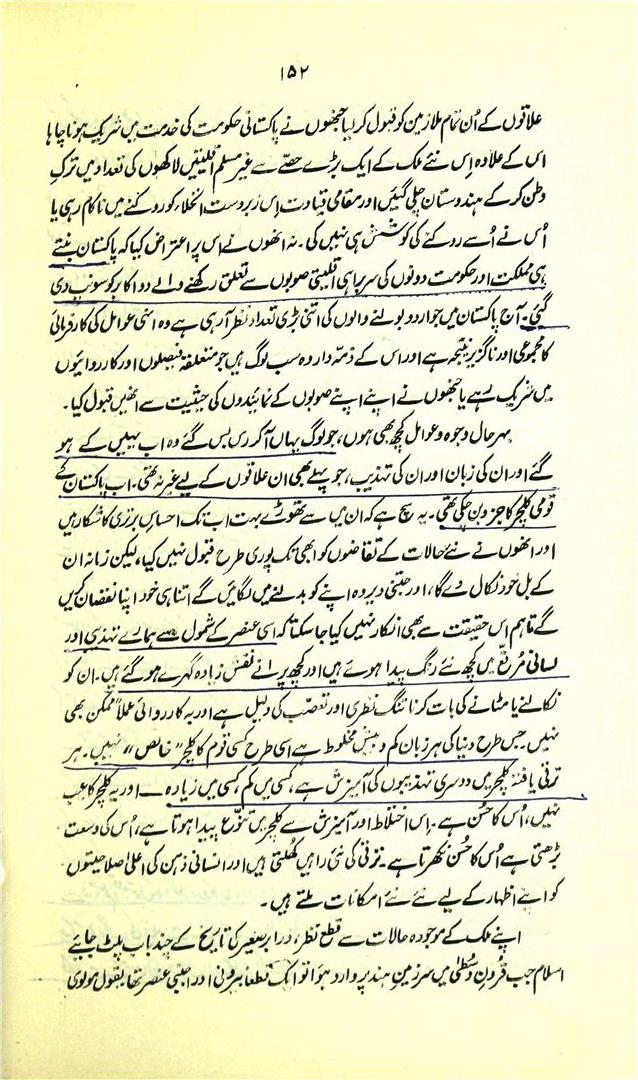 ۱۵۲
علاقوں کے اُن تمام ملازمین کو قبول کر لیا جنھوں نے پاکستانی حکومت کی خدمت میں شریک ہونا چاہا
اس کے علاوہ اس نئے ملک کے ایک بڑے حصّے سے غیر مسلم اقلیتیں لاکھوں کی تعداد میں ترکِ
وطن کر کے ہندوستان چلی گئیں اور مقامی قیادت اس زبردست انخلاء کو روکنے میں ناکام رہی یا
اُس نے اُسے روکنے کی کوشش ہی نہیں کی۔ نہ انھوں نے اس پر اعتراض کیا کہ پاکستان بنتے
ہی مملکت اور حکومت دونوں کی سربراہی اقلیتی صوبوں سے تعلق رکھنے والے دو اکابر کو سونپ دی
گئی۔ آج پاکستان میں جو اردو بولنے والوں کی اتنی بڑی تعداد نظر آ رہی ہے وہ انہی عوامل کی کارفرمائی
کا مجموعی اور ناگزیر نتیجہ ہے اور اس کے ذمّہ دار وہ سب لوگ ہیں جو متعلقہ فیصلوں اور کارروائیوں
میں شریک رہے یا جنھوں نے اپنے اپنے صوبوں کے نمائندوں کی حیثیت سے انھیں قبول کیا۔
بہر حال وجوہ و عوامل کچھ بھی ہوں، جو لوگ یہاں آ کر رس بس گئے وہ اب یہیں کے ہو
گئے اور ان کی زبان اور ان کی تہذیب، جو پہلے بھی ان علاقوں کے لیے غیر نہ تھی۔ اب پاکستان کے
قومی کلچر کا جزو بن چکی تھی۔ یہ سچ ہے کہ ان میں سے تھوڑے بہت اب تک احساسِ برتری کا شکار ہیں
اور انھوں نے نئے حالات کے تقاضوں کو ابھی تک پوری طرح قبول نہیں کیا، لیکن زمانہ ان
کے بل خود نکال دے گا، اور جتنی دیر وہ اپنے کو بدلنے میں لگائیں گے اتنا ہی خود اپنا نقصان کریں
گے تاہم اس حقیقت سے بھی انکار نہیں کیا جا سکتا کہ اسی عنصر کے شمول سے ہمارے تہذیبی اور
لسانی مُرقّع میں کچھ نئے رنگ پیدا ہوئے ہیں اور کچھ پرانے نقش زیادہ گہرے ہو گئے ہیں۔ ان کو
نکالنے یا مٹانے کی بات کرنا تنگ نظری اور تعصب کی دلیل ہے اور یہ کارروائی عملاً ممکن بھی
نہیں۔ جس طرح دنیا کی ہر زبان کم و بیش مخلوط ہے اسی طرح کسی قوم کا کلچر "خالص" نہیں۔ ہر
ترقی یافتہ کلچر میں دوسری تہذیبوں کی آمیزش ہے، کسی میں کم، کسی میں زیادہ — اور یہ کلچر کا عیب
نہیں، اُس کا حُسن ہے۔ اِس اختلاط اور آمیزش سے کلچر میں تنوّع پیدا ہوتا ہے، اُس کی وسعت
بڑھتی ہے اُس کا حُسن نکھرتا ہے۔ ترقی کی نئی راہیں کھُلتی ہیں اور انسانی ذہن کی اعلیٰ صلاحیتوں
کو اپنے اظہار کے لیے نئے نئے امکانات ملتے ہیں۔
اپنے ملک کے موجودہ حالات سے قطع نظر، ذرا برِصغیر کی تاریخ کے چند باب پلٹ جایئے
اسلام جب قُرونِ وُسطٰی میں سرزمینِ ہند پر وارد ہوا تو ایک قطعاً بیرونی اور اجنبی عنصر تھا بقول مولوی